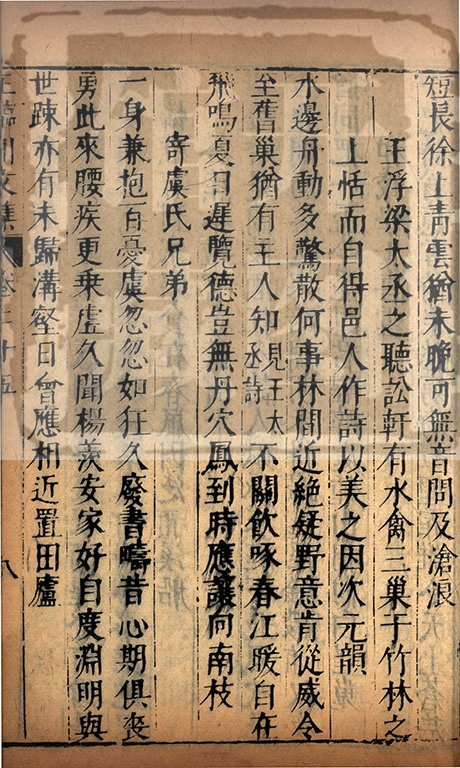 短長徐上青雲猶未晚可無音問及滄浪
王浮梁太丞之聽訟軒有水禽三巢于竹林之
上恬而自得邑人作詩以美之因次元韻
水邊舟動多驚散何事林間近絕疑野意肯從威令
至舊巢猶有主人知見王太丞詩不關飲啄春江暖自在
飛鳴夏日遲覽德豈無丹穴鳳到時應讓向南枝
寄虞氏兄弟
一身兼抱百憂虞忽忽如狂久廢書疇昔心期俱喪
勇此來腰疾更乘虛久聞楊羨安家好自度淵明與
世踈亦有未歸溝壑日會應相近置田廬
王臨川文集卷二十五 八